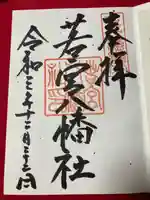 奉拝
若宮八幡社
令和三年十二月二十三日